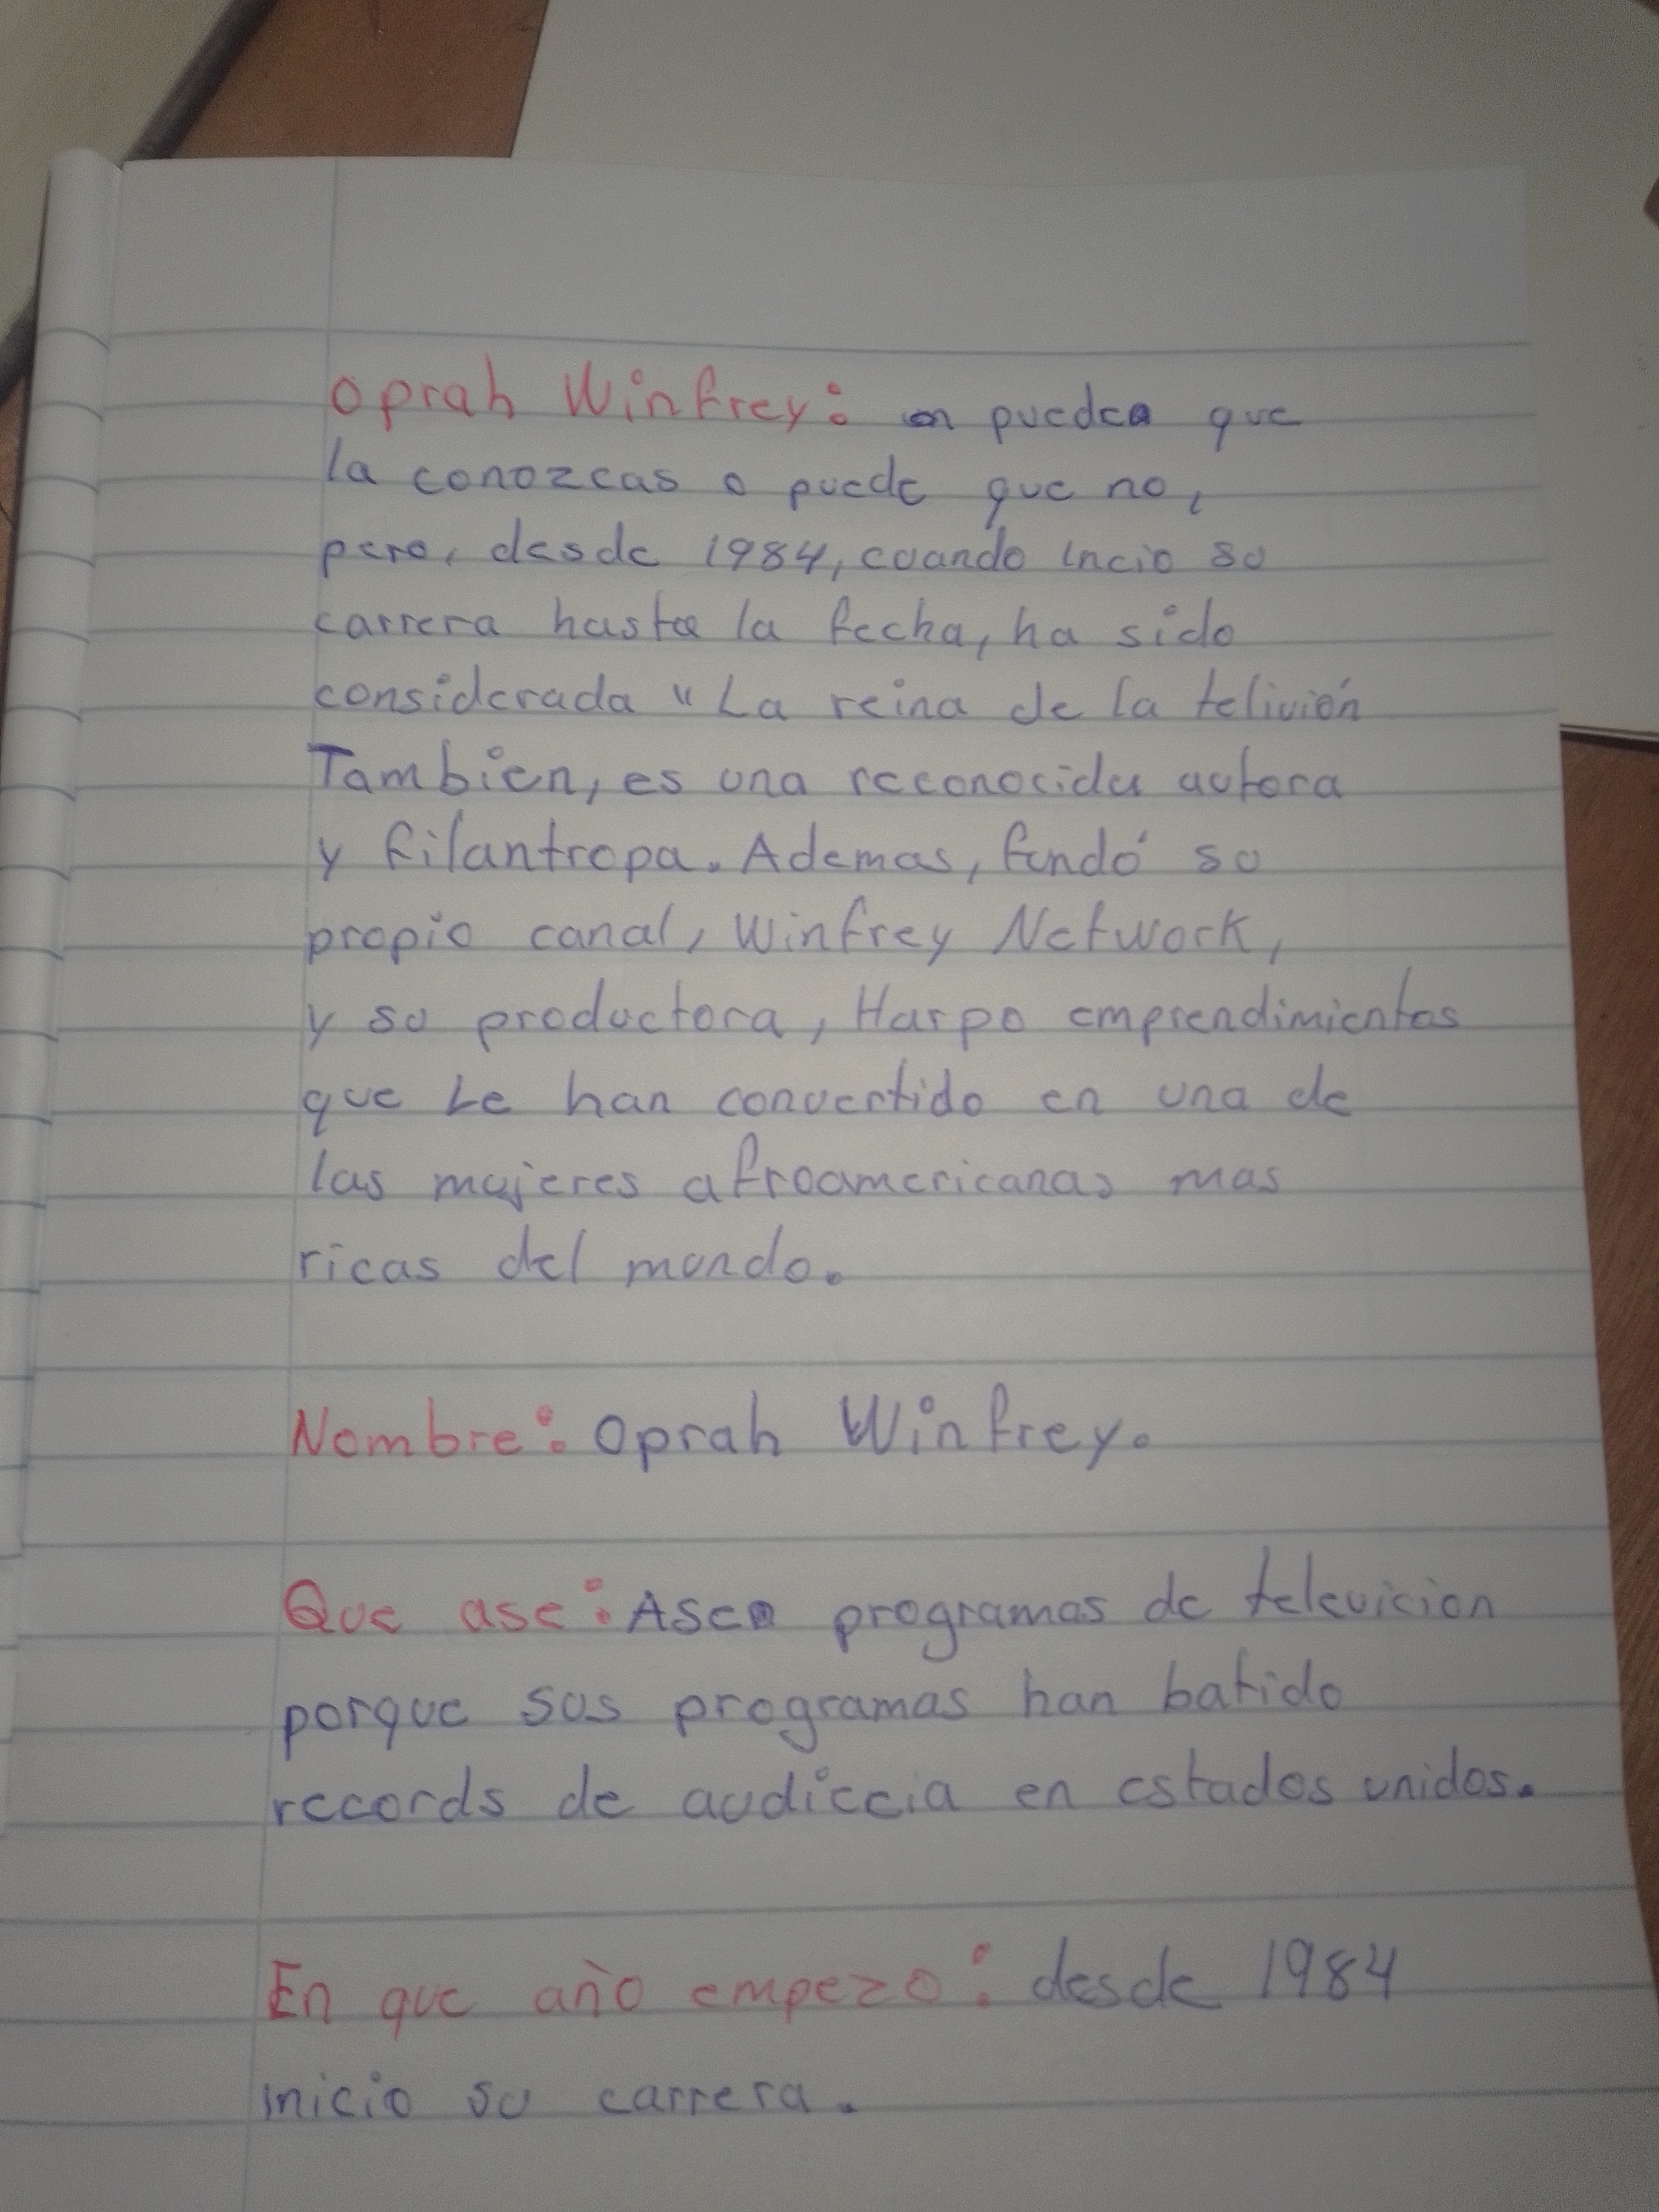 Oprah Winfrey: en puede que
la conozcas o puede que no,
pero, desde 1984, cuando incio su
carrera hasta la fecha, ha sido
considerada "La reina de la telivión
Tambien, es una reconocida autora
y filantropa. Ademas, fundó su
propio canal, Winfrey Network,
y su productora, Harpo emprendimientos
que Le han convertido en una de
las mujeres afroamericanas mas
ricas del mundo.
Nombre: Oprah Winfrey.
Que ase: Ase programas de televicion
porque sus programas han batido
records de audieccia en estados unidos.
En que año empezo: desde 1984
inicio su carrera.